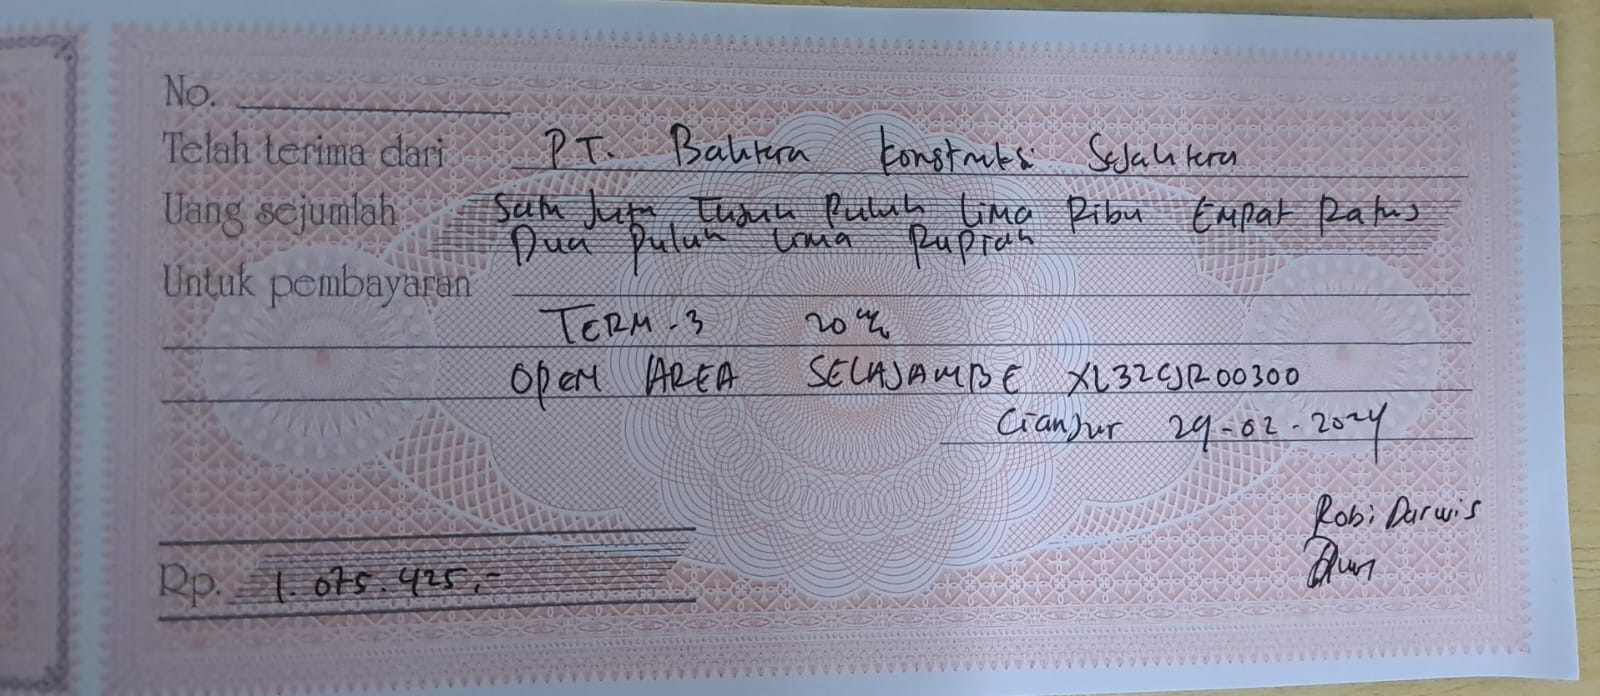 No.
Telah terima dari PT. Bahtera Konstruksi Sejahtera
Uang sejumlah Satu Juta Tujuh Puluh Lima Ribu Empat Ratus
Dua Puluh Lima Rupiah
Untuk pembayaran
TERM-3 20%
OPEN AREA SELAJAMBE XL32CJR00300
Cianjur 29-02-2024
Robi Darwis
Rp. 1.075.425,-